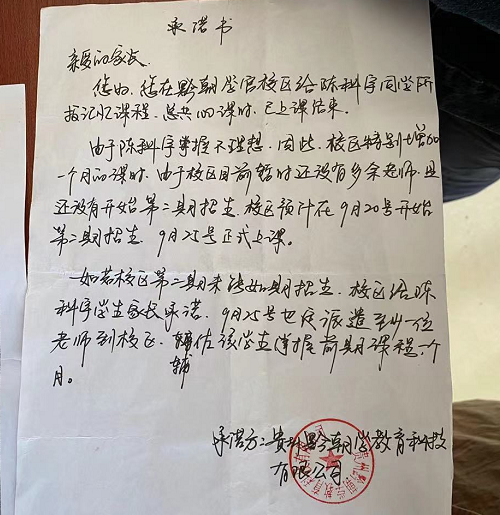 承诺书
亲爱的家长
您好,您在黔朝学官校区给陈科宇同学所
报记忆课程,总共10课时,已上课结束。
由于陈科宇掌握不理想,因此,校区特别增加
一个月的课时,由于校区目前暂时还没有多余老师,且
还没有开始第二期招生,校区预计在9月20号开始
第二期招生,9月25号正式上课。
如若校区第二期未能如期招生,校区给陈
科宇学生家长承诺,9月25号也定派遣至少一位
老师到校区,辅佐该学生掌握前期课程一个
辅
月。
承诺方:贵州黔朝学教育科技
有限公司